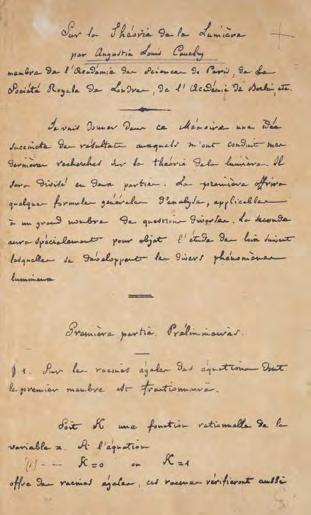 Sur la Théorie de la Lumière
par Augustin Louis Cauchy
membre de l'Académie des Sciences de Paris, de la
Société Royale de Londres, de l'Académie de Berlin, etc.
Je vais donner dans ce Mémoire une idée
succincte des résultats auxquels m'ont conduit mes
dernières recherches sur la théorie de la lumière. Il
sera divisé en deux parties. La première offrira
quelques formules générales d'analyse, applicables
à un grand nombre de questions diverses. La seconde
aura spécialement pour objet l'étude des lois suivant
lesquelles se développent les divers phénomènes
lumineux
Première partie. Préliminaires.
§ 1. Sur les racines égales des équations dont
le premier membre est fractionnaire.
Soit K une fonction rationnelle de la
variable x. Si l'équation
(1) - - K = 0 ou K = 1
offre des racines égales, ces racines vérifieront aussi